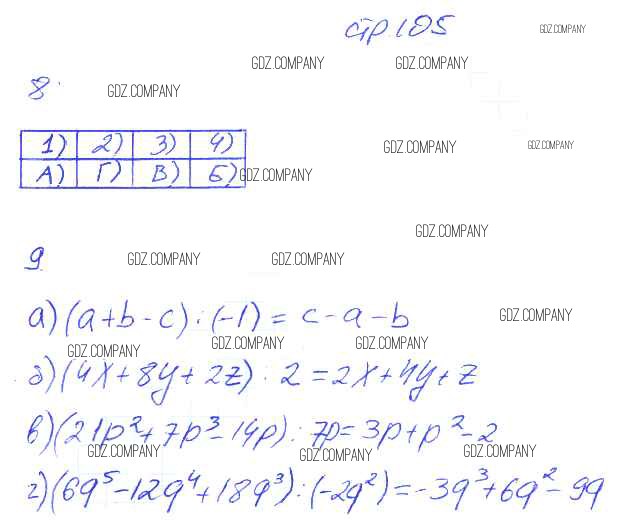 стр 105
GDZ.COMPANY
GDZ.COMPANY GDZ.COMPANY
8.
GDZ.COMPANY
1) 2) 3) 4)
GDZ.COMPANY GDZ.COMPANY
А) Г) В) Б)
GDZ.COMPANY
GDZ.COMPANY
9
GDZ.COMPANY GDZ.COMPANY
а) (a+b-c) : (-1) = c-a-b
GDZ.COMPANY
GDZ.COMPANY GDZ.COMPANY GDZ.COMPANY
б) (4x+8y+2z) : 2 = 2x+4y+z
в) (21p²+7p³-14p) : 7p = 3p+p²-2
GDZ.COMPANY GDZ.COMPANY GDZ.COMPANY
г) (6q⁵-12q⁴+18q³) : (-2q²) = -3q³+6q²-9q